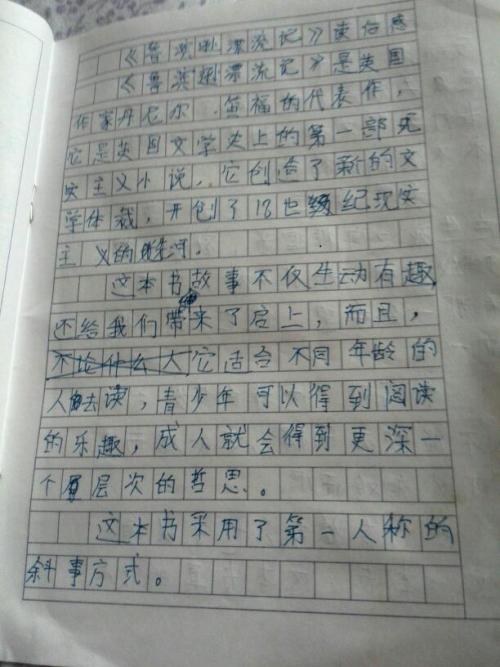 《鲁滨逊漂流记》读后感
《鲁滨逊漂流记》是英国
作家丹尼尔.笛福的代表作,
它是英国文学史上的第一部现
实主义小说,它创造了新的文
学体裁,开创了18世纪现实
主义的先河.
这本书故事不仅生动有趣
还给我们带来了启上,而且,
不论什么人它适合不同年龄的
人去读,青少年可以得到阅读
的乐趣,成人就会得到更深一
个层次的哲思。
这本书采用了第一人称的
斜事方式。